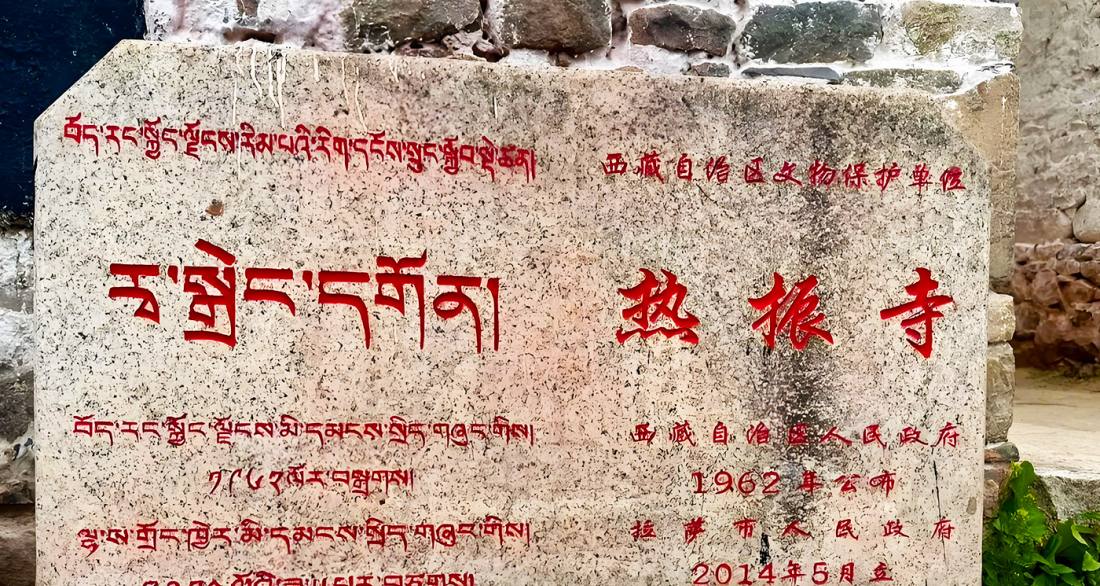 བོད་རང་སྐྱོང་ལྗོངས་རིམ་པའི་རིག་དངོས་སྲུང་སྐྱོབ་སྡེ་ཚན།
西藏自治区文物保护单位
ར་སྒྲེང་དགོན།
热振寺
བོད་རང་སྐྱོང་ལྗོངས་མི་དམངས་སྲིད་གཞུང་གིས།
西藏自治区人民政府
༡༩༦༢ལོར་བསྒྲགས།
1962年公布
ལྷ་ས་གྲོང་ཁྱེར་མི་དམངས་སྲིད་གཞུང་གིས།
拉萨市人民政府
2014年5月立